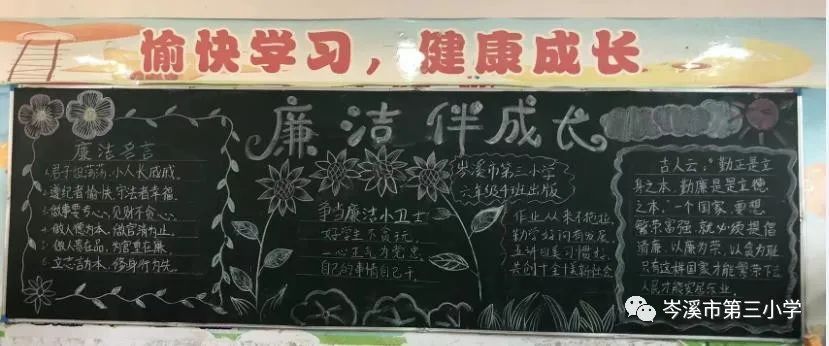 愉快学习，健康成长
廉洁伴成长
廉洁名言
1.君子坦荡荡，小人长戚戚。
2.遵纪者愉快，守法者幸福。
3.做事要专心，见财不贪心。
4.做人德为本，做官清为上。
5.做人贵在品，为官重在廉。
6.立志言为本，修身行为先。
争当廉洁小卫士
好学生不贪玩，
一心正气为党忠，
自己的事情自己干，
岑溪市第三小学
出版
作业从来不拖拉，
勤学好问有发展，
五讲四美习惯好，
共创十全十美新社会
古人云：“勤正是立
身之本，勤廉是是立德
之本，一个国家，要想
繁荣富强，就必须提倡
清廉，以廉为荣，以贪为耻
只有这样国家才能繁荣下去
人民才能安居乐业。
岑溪市第三小学